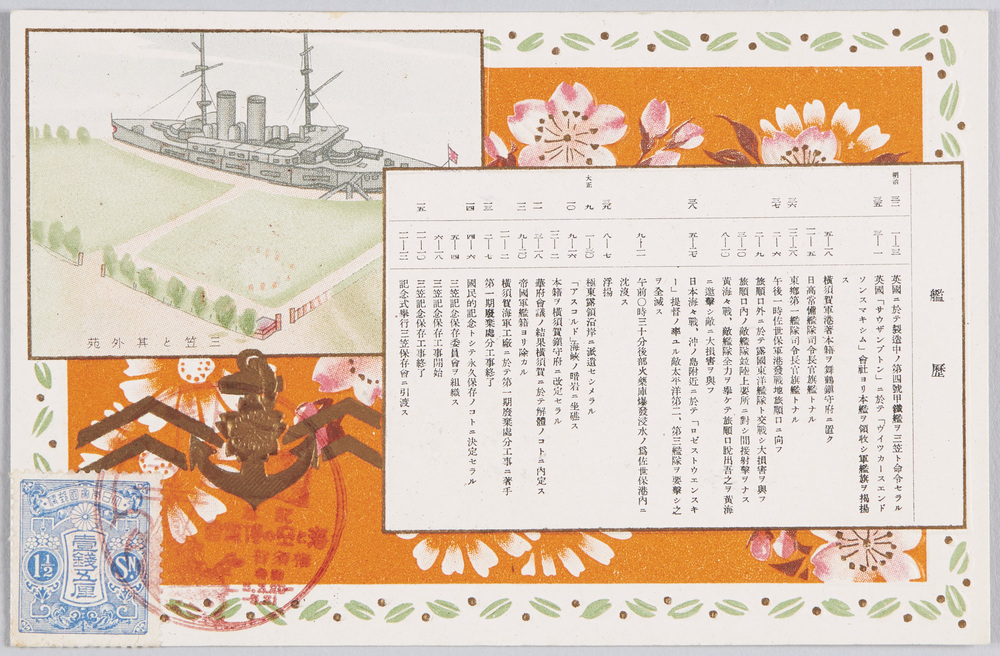 艦歴
明治三二 一—三 英國ニ於テ製造中ノ第四號甲鐵艦ヲ三笠ト命令セラル
三五 三—一 英國「サウザンプトン」ニ於テ「ヴイツカースエンド
ソンスマキシム」會社ヨリ本艦ヲ領收シ軍艦旗ヲ掲揚
ス
五—一八 橫須賀軍港著本籍ヲ舞鶴鎭守府ニ置ク
一一—五 日高常備艦隊司令長官旗艦トナル
三六 三—六 東鄕第一艦隊司令長官旗艦トナル
三七 二—六 午後一時佐世保軍港發戰地旅順口ニ向フ
二—九 旅順口外ニ於テ露國東洋艦隊ト交戰シ大損害ヲ與フ
三—一〇 旅順口內ノ敵艦隊竝陸上要所ニ對シ間接射擊ヲナス
八—一〇 黃海々戰、敵艦隊全力ヲ擧シテ旅順口脫出吾之ヲ黃海
ニ邀擊シ敵ニ大損害ヲ與フ
三八 五—二七 日本海々戰、沖ノ島附近ニ於テ「ロゼストウエンスキ
ー」提督ノ率ユル敵太平洋第二、第三艦隊ヲ要擊シ之
ヲ全滅ス
九—一一 午前〇時三十分後部火藥庫爆發浸水ノ爲佐世保港內ニ
沈沒ス
三九 八—七 浮揚
大正九 一—三〇 極東露領沿岸ニ派遣セシメラル
一〇 九—一六 「アスコルド」海峽ノ暗岩ニ坐礁ス
一二—二 本籍ヲ橫須賀鎭守府ニ改定セラル
一一 三—一八 華府會議ノ結果橫須賀ニ於テ解體ノコトニ內定ス
一二 九—二〇 帝國軍艦籍ヨリ除カル
一二—二 橫須賀海軍工廠ニ於テ第一期廢棄處分工事ニ著手
一三 二—七 第一期廢棄處分工事終了
一四 四—六 國民的記念トシテ永久保存ノコトニ決定セラル
五—四 三笠記念保存委員會ヲ組織ス
六—一八 三笠記念保存工事開始
一五 一一—一〇 三笠記念保存工事終了
一一—一二 記念式擧行三笠保存會ニ引渡ス
苑外其と笠三
大日本帝國郵便
壹錢五厘
1½ Sn.
海と空の博覽會